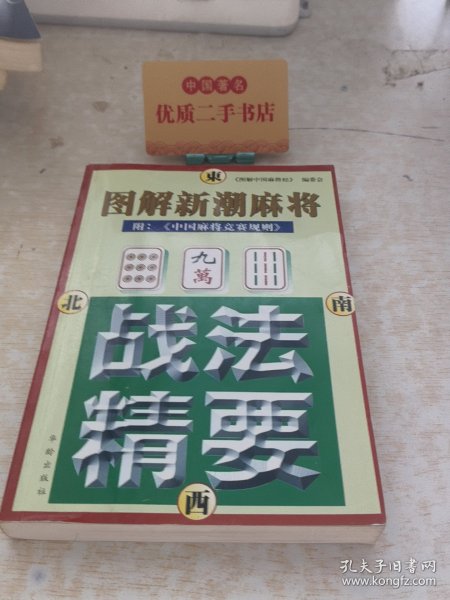 中国著名
优质二手书店
東
《图解中国麻将经》 编委会
图解新潮麻将
附：《中国麻将竞赛规则》
九
萬
北
南
战法
精要
华龄出版社
西
孔夫子旧书网
www.kongfz.com